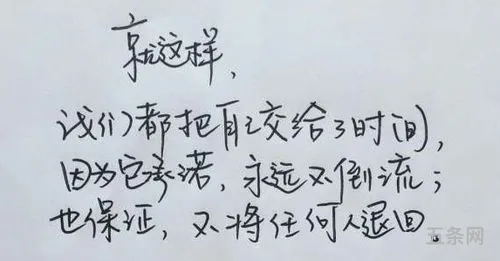 就这样，
我们都把自己交给了时间，
因为它承诺，永远不倒流；
也保证，不将任何人退回。
五条网